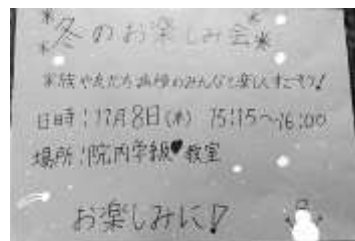 *冬のお楽しみ会*
家族や友だち病棟のみんなと楽しくすごそう!
日時:11月8日(木) 15:15~16:00
場所:院内学級♥教室
お楽しみに!